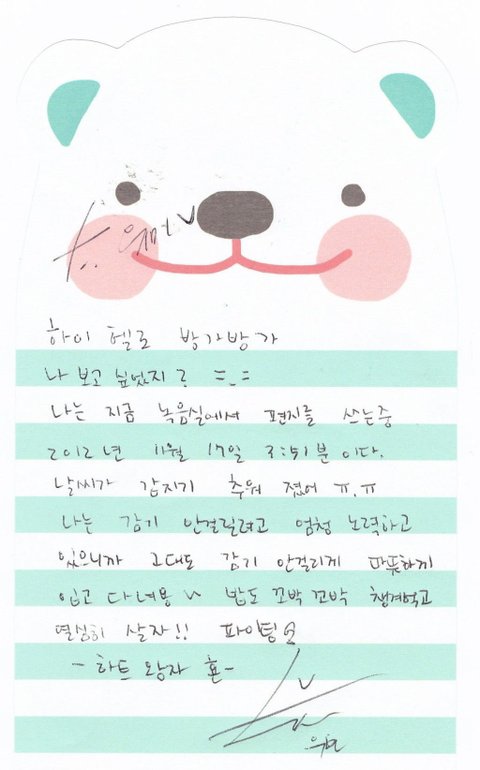 하이 헬로 방가방가
나 보고 싶었지? =_=
나는 지금 녹음실에서 편지를 쓰는중
2012년 11월 17일 3:51분 이다.
날씨가 갑자기 추워 졌어 ㅠ.ㅠ
나는 감기 안걸릴려고 엄청 노력하고
있으니까 그대도 감기 안걸리게 따뜻하게
입고 다녀용 ^^ 밥도 꼬박꼬박 챙겨먹고
열심히 살자!! 파이팅요
- 하트 왕자 혼 -